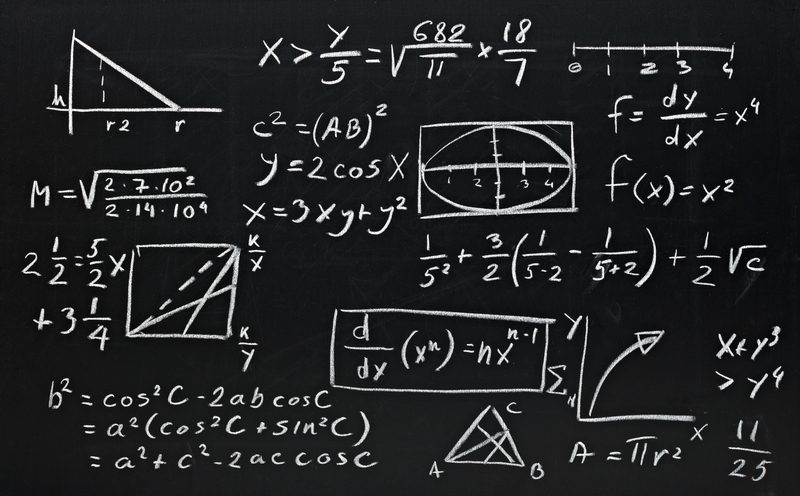 h
r2 r
x > y/5 = √(682/π) × 18/7
0 1 2 3 4
c² = (AB)²
y = 2 cos x
x = 3xy + y²
1 2 3 4
f = dy/dx = x⁴
f(x) = x²
M = √(2·7·10²/2·14·10⁴)
2 1/2 = 5/2 x
+ 3 1/4
K/X
K/Y
1/5² + 3/2 (1/5-2 - 1/5+2) + 1/2 √c
d/dx (xⁿ) = nxⁿ⁻¹
Y
Σ
X
x + y³
> y⁴
b² = cos²C - 2ab cosC
= a²(cos²C + sin²C)
= a² + c² - 2accosc
A B C
A = πr²
11/25